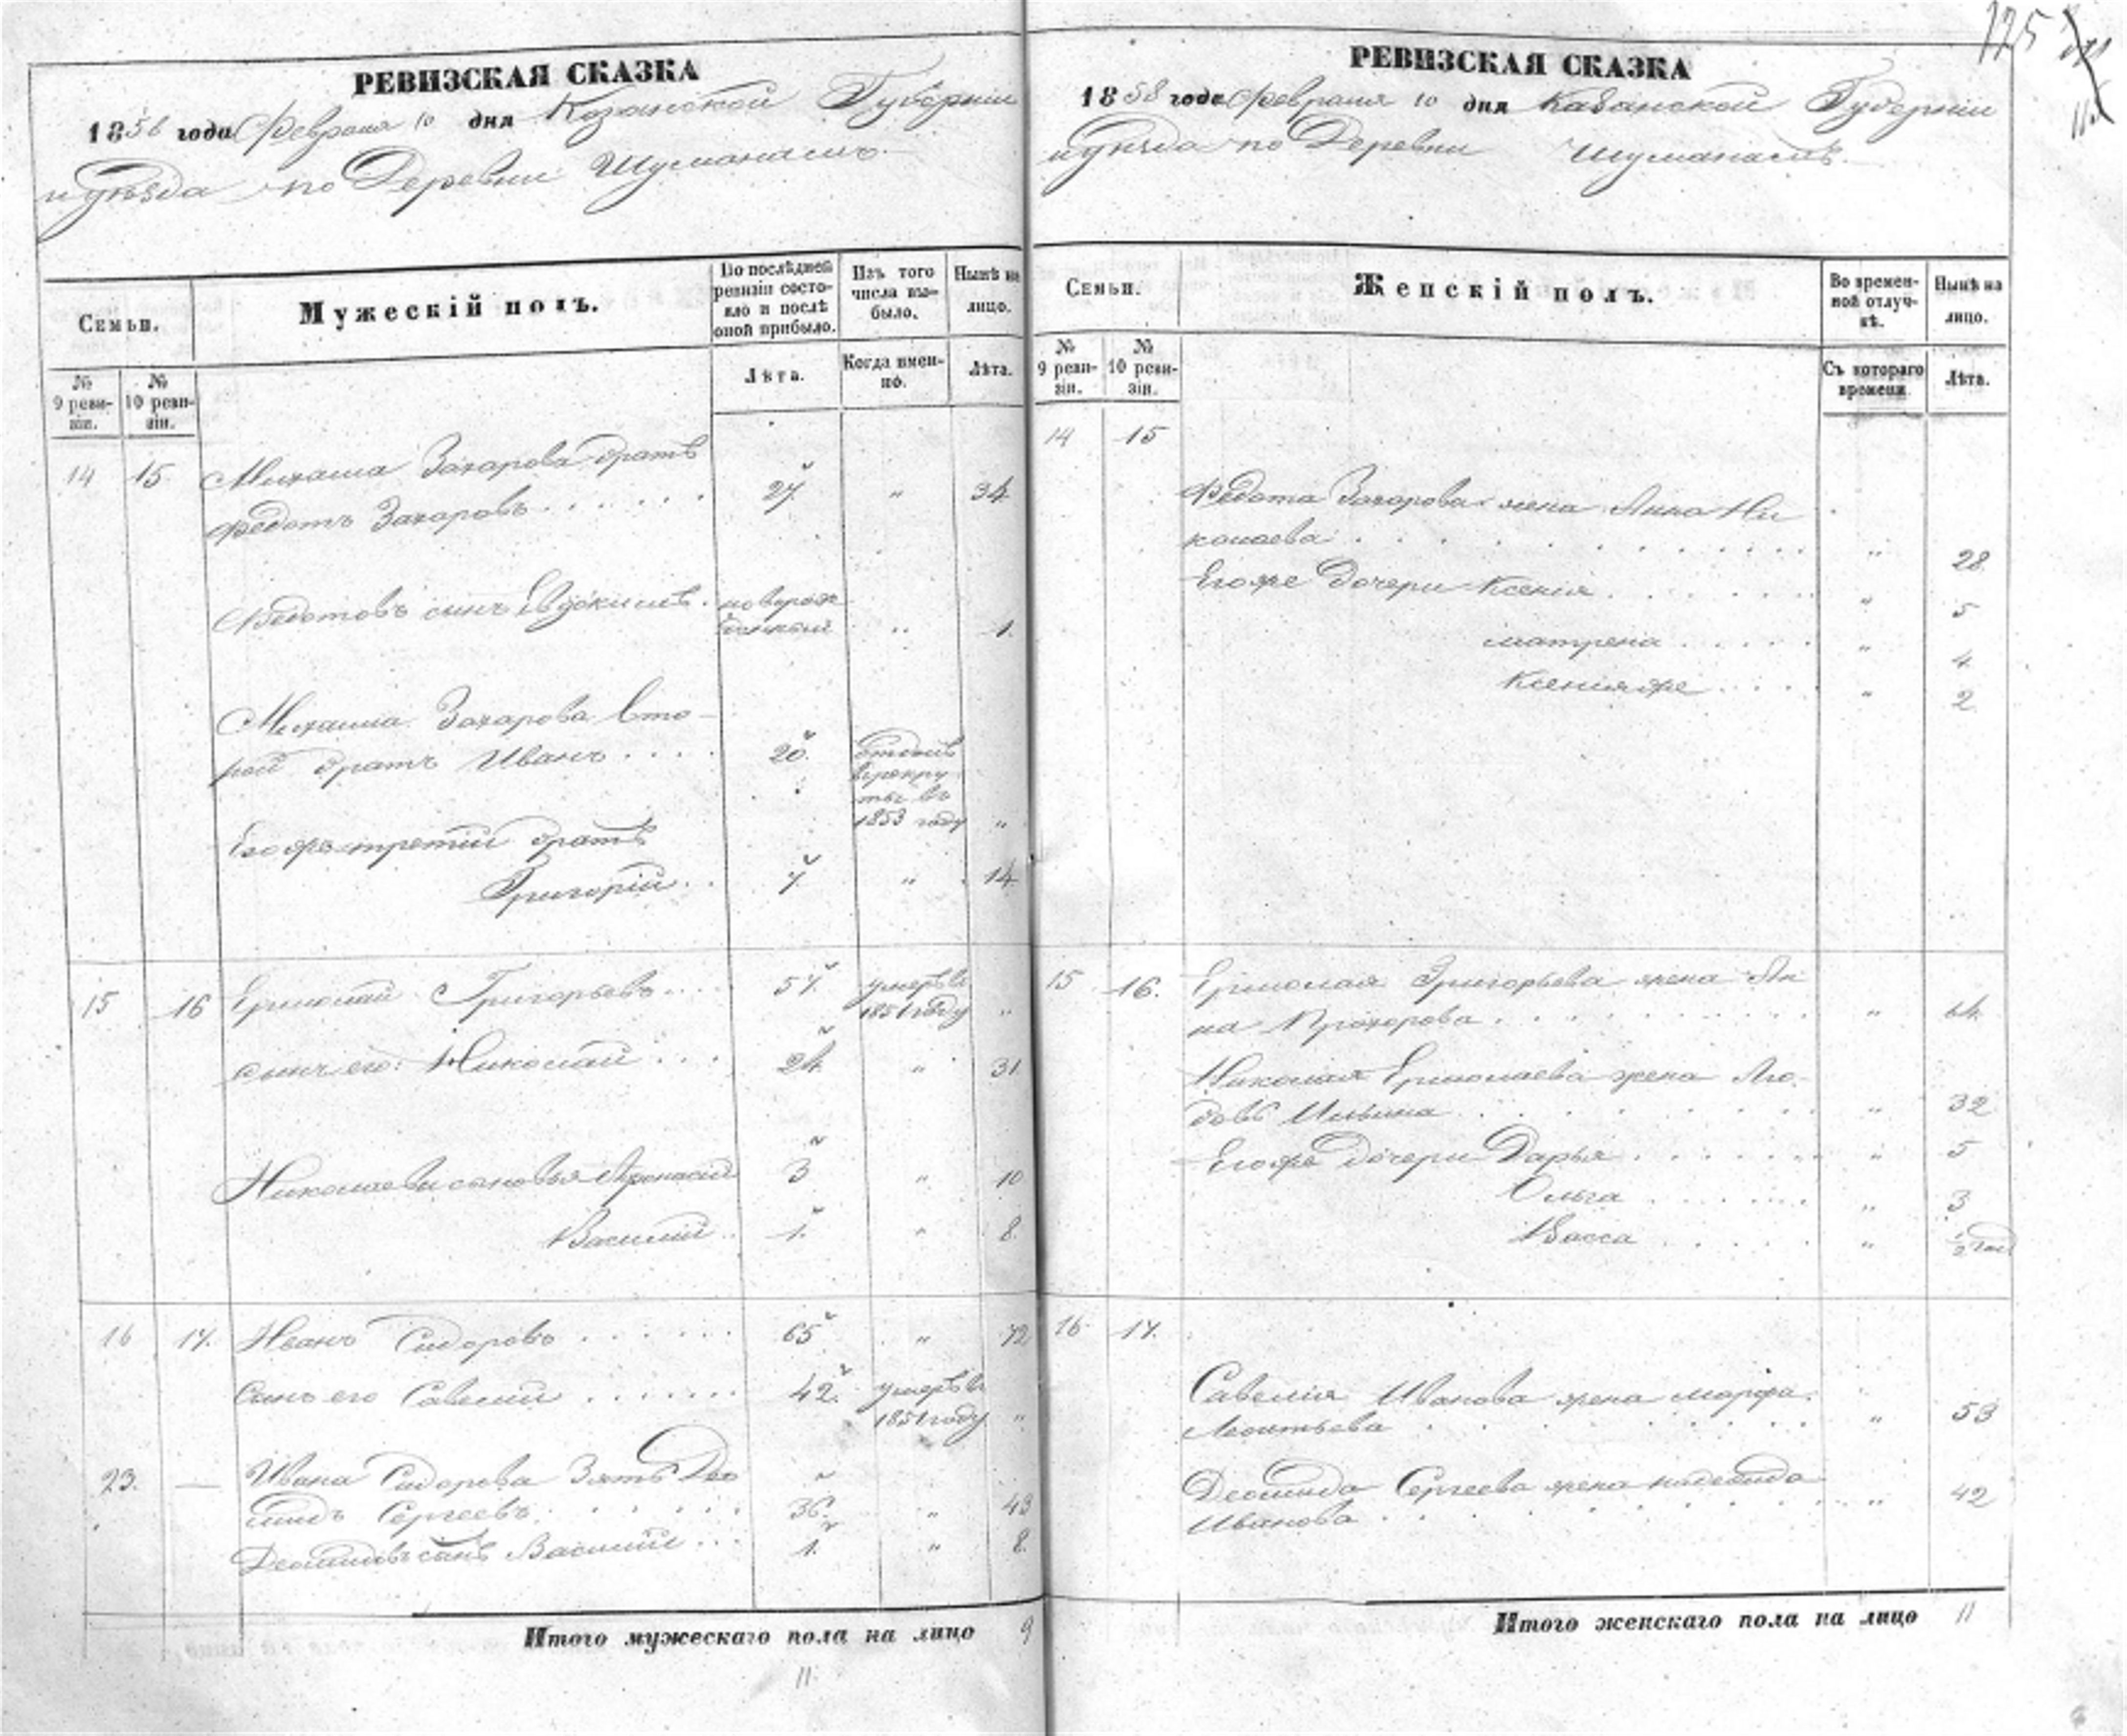 РЕВИЗСКАЯ СКАЗКА
1858 года Февраля 10 дня Казанской Губерніи
и уѣзда по Деревни Шуманамъ.
Семьи.
Мужескій полъ.
По послѣдней ревизіи состояло и послѣ оной прибыло.
Изъ того числа выбыло.
Нынѣ на лицо.
№ 9 ревизіи.
№ 10 ревизіи.
Лѣта.
Когда именно.
Лѣта.
14 15 Михаила Захарова братъ
Федотъ Захаровъ . . . . . . 27 „ 34
Федотовъ сынъ Евдокимъ . новорож
денный „ 1
Михаила Захарова вто-
рой братъ Иванъ . . . . 20 отданъ
в рекру
ты въ
1853 году „
Егоже третій братъ
Григорій . . 7 „ 14
15 16 Ермолай Григорьевъ . . . . 57 умеръ въ
1851 году „
сынъ его: Николай . . . 24 „ 31
Николаевы сыновья Афонасей 3 „ 10
Василій . . 1 „ 8
16 17. Иванъ Сидоровъ . . . . . . 65 „ 72
Сынъ его Савелій . . . . . . 42 умеръ въ
1851 году „
23. — Ивана Сидорова Зять Део
мидъ Сергеевъ . . . . . . 36 „ 43
Деомидовъ сынъ Василій . . . 1 „ 8
Итого мужескаго пола на лицо 9
11.
125
РЕВИЗСКАЯ СКАЗКА
1858 года Февраля 10 дня Казанской Губерніи
и уѣзда по Деревни Шуманамъ.
Семьи.
Женскій полъ.
Во временной отлучкѣ.
Нынѣ на лицо.
№ 9 ревизіи.
№ 10 ревизіи.
Съ котораго времени.
Лѣта.
14 15
Федота Захарова жена Анна Ни
колаева . . . . . . „ 28
Егоже дочери Ксенія . . . . . . „ 5
матрена . . . . . „ 4
Ксенія же . . . . „ 2
15 16. Ермолая Григорьева жена Ан
на Прохорова . . . . . . . „ 64
Николая Ермолаева жена Лю-
бовь Ильина . . . . . . „ 32
Егоже дочери Дарья . . . . . . „ 5
Ольга . . . . . . „ 3
Васса . . . . . „ 1/2 год
16 17.
Савелія Иванова жена марфа
Леонтьева . . . . . . „ 53
Деомида Сергеева жена надежда
Иванова . . . . . . „ 42
Итого женскаго пола на лицо 11